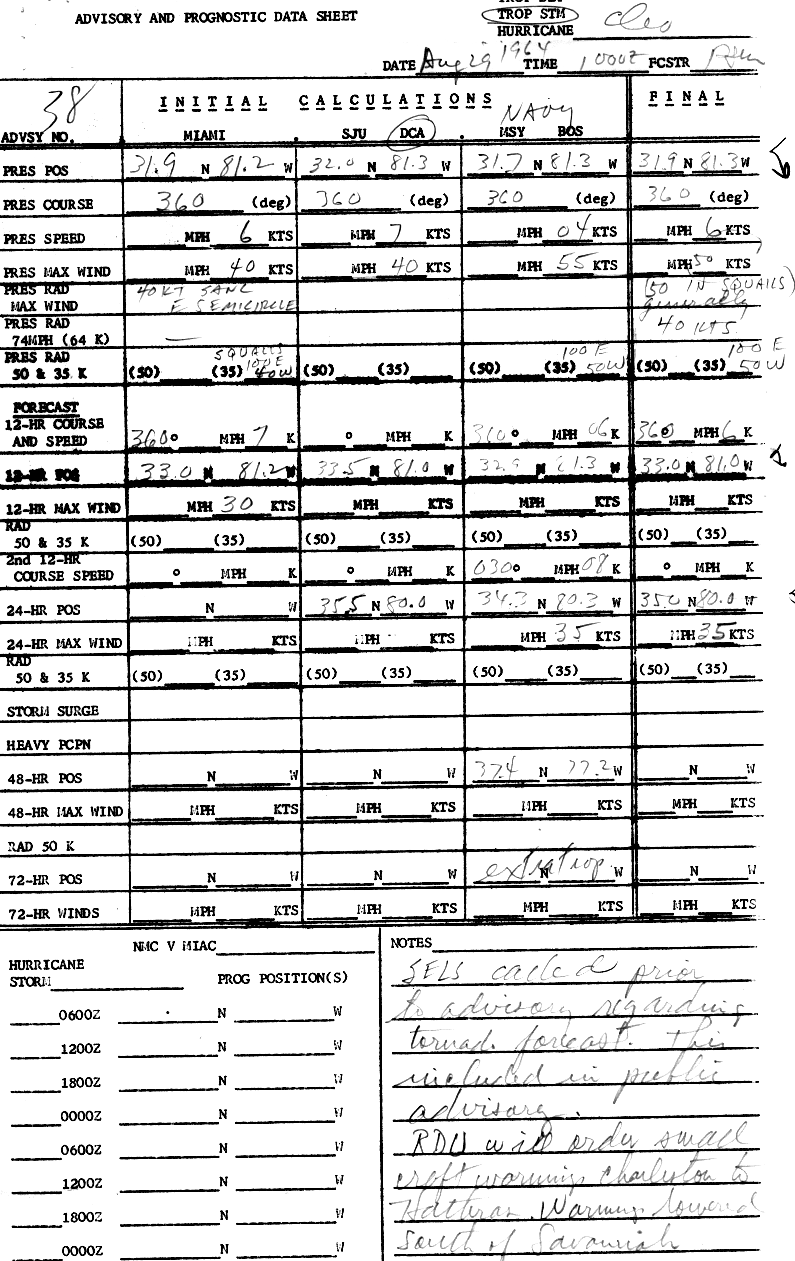 TROP STM
ADVISORY AND PROGNOSTIC DATA SHEET
HURRICANE Cleo
DATE Aug 29 1964 TIME 1000Z FCSTR
38 INITIAL CALCULATIONS FINAL
NAVY
ADVSY NO. MIAMI SJU DCA . MSY BOS
PRES POS 31.9 N 81.2 W 32.0 N 81.3 W 31.7 N 81.3 W 31.9 N 81.3 W
PRES COURSE 360 (deg) 360 (deg) 360 (deg) 360 (deg)
PRES SPEED MPH 6 KTS MPH 7 KTS MPH 04 KTS MPH 6 KTS
PRES MAX WIND MPH 40 KTS MPH 40 KTS MPH 55 KTS MPH 50 KTS
PRES RAD 40 KT (50 IN SQUALLS)
MAX WIND E SEMICIRCLE generally
PRES RAD 40 KTS
74MPH (64 K) —
PRES RAD SQUALLS 100 E 100 E 100 E
50 & 35 K (50) (35) 40W (50) (35) (50) (35) 50W (50) (35) 50W
FORECAST
12-HR COURSE
AND SPEED 360° MPH 7 K ° MPH K 360° MPH 06 K 360 MPH 6 K
12-HR POS 33.0 N 81.2 W 33.5 N 81.0 W 32.9 N 81.3 W 33.0 N 81.0 W
12-HR MAX WIND MPH 30 KTS MPH KTS MPH KTS MPH KTS
RAD
50 & 35 K (50) (35) (50) (35) (50) (35) (50) (35)
2nd 12-HR
COURSE SPEED ° MPH K ° MPH K 030° MPH K ° MPH K
24-HR POS N W 35.5 N 80.0 W 34.3 N 80.3 W 35.0 N 80.0 W
24-HR MAX WIND MPH KTS MPH KTS MPH 35 KTS MPH 35 KTS
RAD
50 & 35 K (50) (35) (50) (35) (50) (35) (50) (35)
STORM SURGE
HEAVY PCPN
48-HR POS N W N W 37.4 N 77.2 W N W
48-HR MAX WIND MPH KTS MPH KTS MPH KTS MPH KTS
RAD 50 K
72-HR POS N W N W extratrop N W N W
72-HR WINDS MPH KTS MPH KTS MPH KTS MPH KTS
NMC V MIAC
HURRICANE
STORM PROG POSITION(S)
0600Z N W
1200Z N W
1800Z N W
0000Z N W
0600Z N W
1200Z N W
1800Z N W
0000Z N W
NOTES
SELS called prior
to advisory regarding
tornado forecast. This
included in public
advisory.
RDU will order small
craft warnings Charleston to
Hatteras. Warnings lowered
South of Savannah